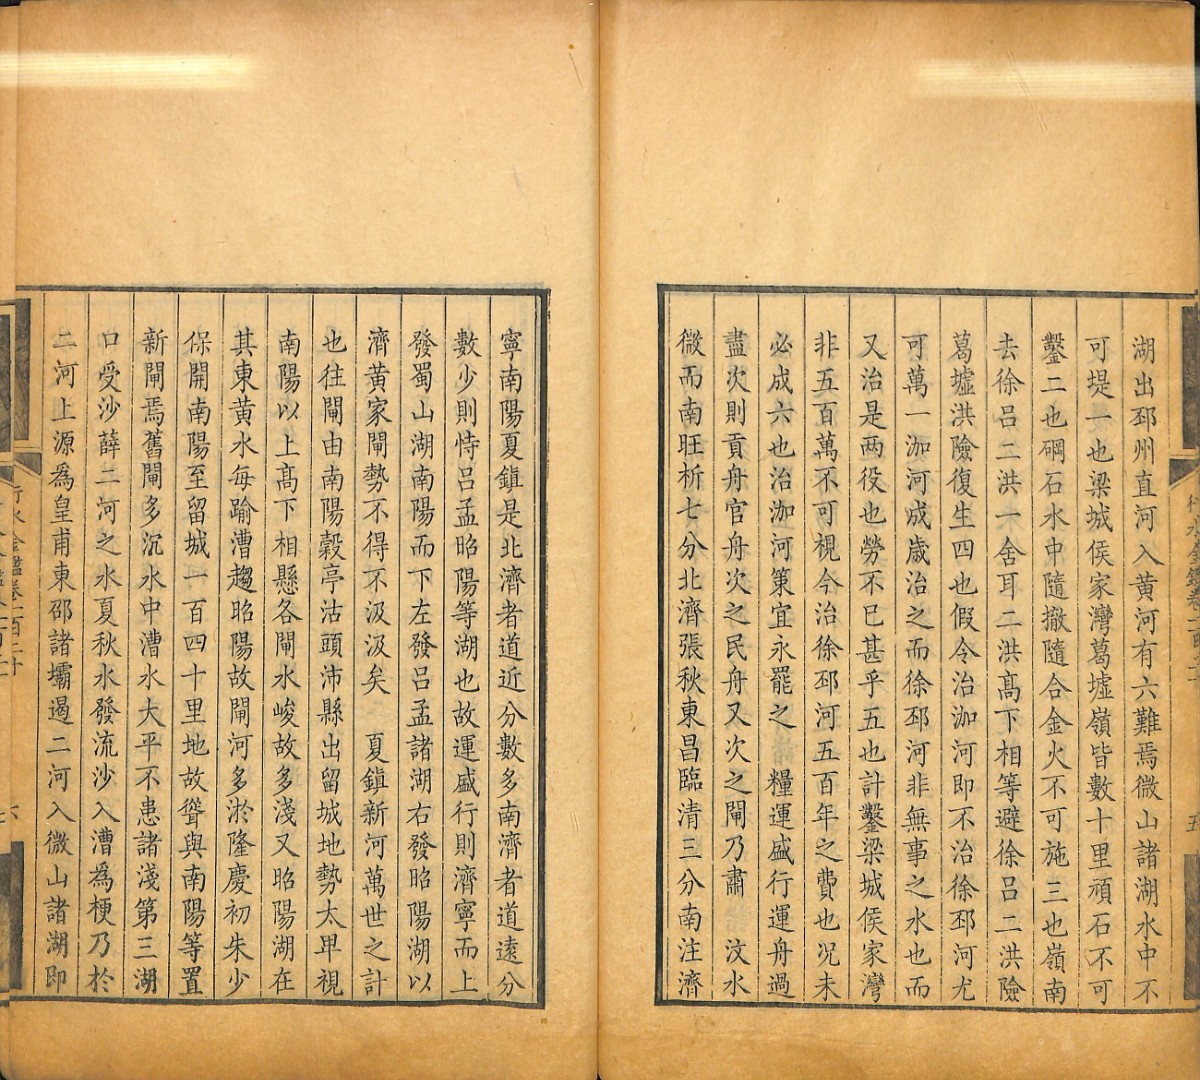 湖出邳州直河入黄河有六難焉微山諸湖水中不
可堤一也梁城侯家灣葛墟嶺皆數十里頑石不可
鑿二也磵石水中隨撤隨合金火不可施三也嶺南
去徐吕二洪一舍耳二洪髙下相等避徐吕二洪險
葛墟洪險復生四也假令治泇河即不治徐邳河尤
可萬一泇河成歲治之而徐邳河非無事之水也而
又治是两役也勞不已甚乎五也計鑿梁城侯家灣
非五百萬不可視今治徐邳河五百年之費也况未
必成六也治泇河策宜永罷之　糧運盛行運舟過
盡次則貢舟官舟次之民舟又次之閘乃肅　汶水
微而南旺析七分北濟張秋東昌臨清三分南注濟
寧南陽夏鎮是北濟者道近分數多南濟者道逺分
數少則恃吕孟昭陽等湖也故運盛行則濟寧而上
發蜀山湖南陽而下左發吕孟諸湖右發昭陽湖以
濟黄家閘勢不得不汲汲矣　夏鎮新河萬世之計
也往閘由南陽穀亭沽頭沛縣出留城地勢太卑視
南陽以上髙下相懸各閘水峻故多淺又昭陽湖在
其東黄水每踰漕趨昭陽故閘河多淤隆慶初朱少
保開南陽至留城一百四十里地故聳與南陽等置
新閘焉舊閘多沉水中漕水大平不患諸淺第三湖
口受沙薛二河之水夏秋水發流沙入漕為梗乃於
二河上源為皇甫東邵諸壩遏二河入微山諸湖即
行水金鑑卷一百二十
六